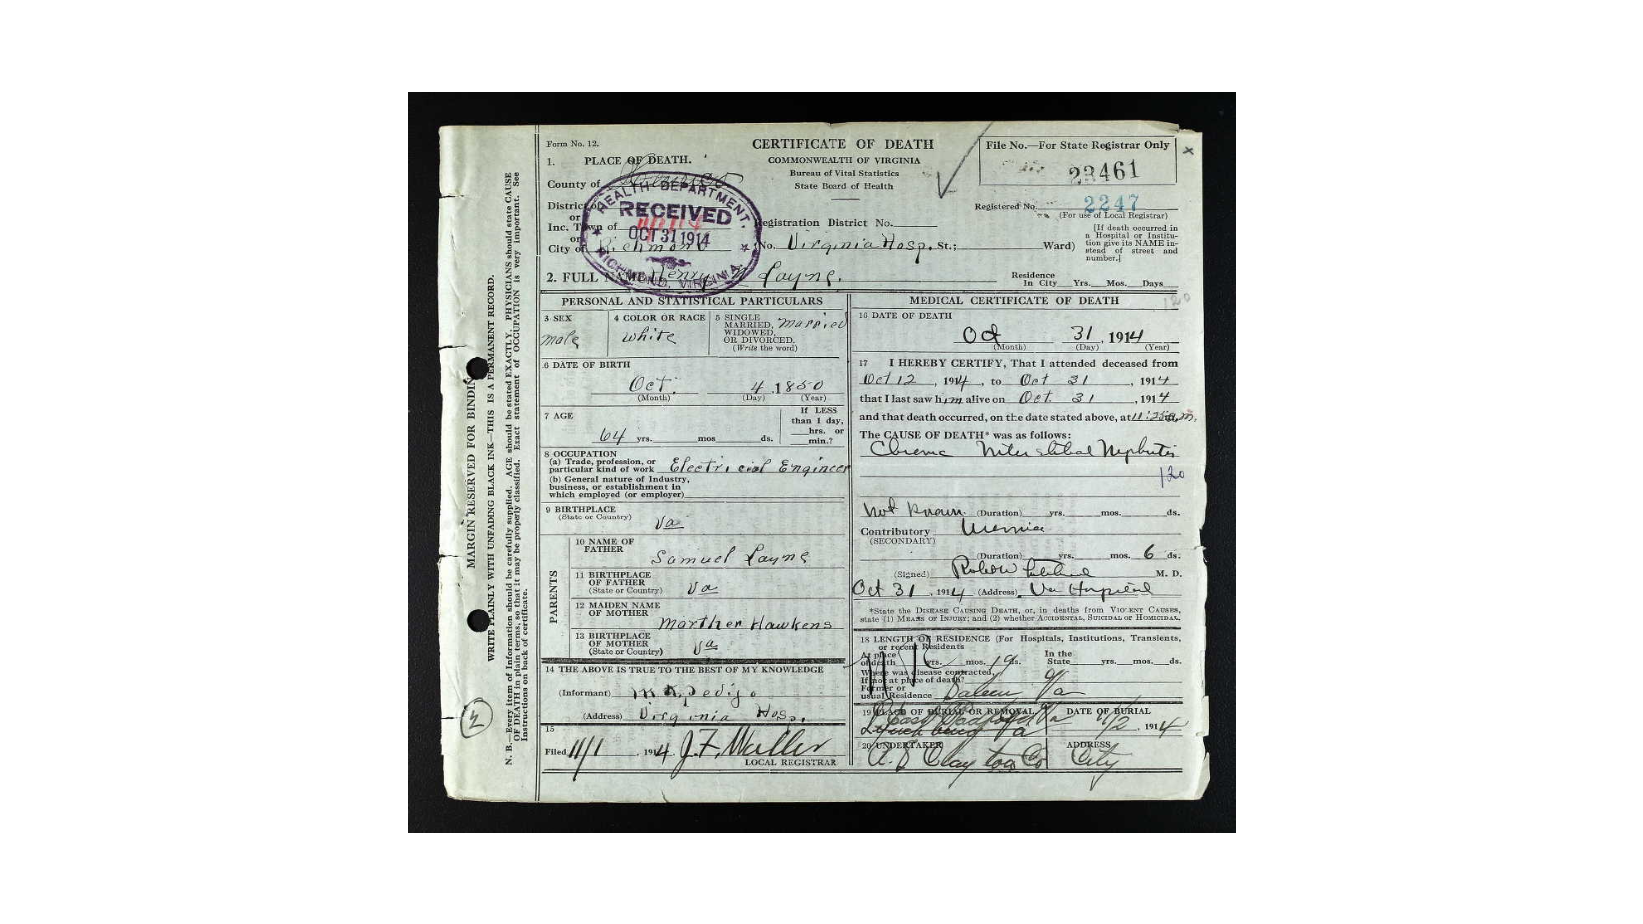 Form No. 12.
CERTIFICATE OF DEATH
COMMONWEALTH OF VIRGINIA
Bureau of Vital Statistics
State Board of Health
File No.—For State Registrar Only
23461
Registered No. 2247
(For use of Local Registrar)
[If death occurred in
a Hospital or Institu-
tion give its NAME in-
stead of street and
number.]
1. PLACE OF DEATH.
County of Henrico
District of
or
Inc. Town of
or
City of Richmond
HEALTH DEPARTMENT
RECEIVED
OCT 31 1914
RICHMOND, VIRGINIA
Registration District No.
(No. Virginia Hosp. St.; Ward)
2. FULL NAME Henry Layne.
Residence
In City Yrs. Mos. Days
PERSONAL AND STATISTICAL PARTICULARS
3 SEX
male
4 COLOR OR RACE
white
5 SINGLE
MARRIED,
WIDOWED,
OR DIVORCED.
(Write the word)
married
6 DATE OF BIRTH
Oct. 4, 1850
(Month) (Day) (Year)
7 AGE
64 yrs. mos. ds.
If LESS
than 1 day,
hrs. or
min.?
8 OCCUPATION
(a) Trade, profession, or
particular kind of work Electricial Engineer
(b) General nature of Industry,
business, or establishment in
which employed (or employer)
9 BIRTHPLACE
(State or Country)
Va
PARENTS
10 NAME OF
FATHER
Samuel Layne
11 BIRTHPLACE
OF FATHER
(State or Country)
Va
12 MAIDEN NAME
OF MOTHER
Marther Hawkens
13 BIRTHPLACE
OF MOTHER
(State or Country)
Va
14 THE ABOVE IS TRUE TO THE BEST OF MY KNOWLEDGE
(Informant) Pedigo
(Address) Virginia Hosp.
15
Filed 11/1, 1914 J. F. Waller
LOCAL REGISTRAR
MEDICAL CERTIFICATE OF DEATH
120
16 DATE OF DEATH
Oct 31, 1914
(Month) (Day) (Year)
17 I HEREBY CERTIFY, That I attended deceased from
Oct 12, 1914, to Oct 31, 1914
that I last saw him alive on Oct. 31, 1914
and that death occurred, on the date stated above, at m.
The CAUSE OF DEATH* was as follows:
Chronic Interstitial Nephritis
120
Not known. (Duration) yrs. mos. ds.
Contributory Uremia
(SECONDARY)
(Duration) yrs. mos. 6 ds.
(Signed) M. D.
Oct 31, 1914 (Address) Va Hospital
*State the DISEASE CAUSING DEATH, or, in deaths from VIOLENT CAUSES,
state (1) MEANS OF INJURY; and (2) whether ACCIDENTAL, SUICIDAL or HOMICIDAL.
18 LENGTH OF RESIDENCE (For Hospitals, Institutions, Transients,
or recent Residents
At place
of death yrs. mos. 19 ds.
In the
State yrs. mos. ds.
Where was disease contracted,
If not at place of death?
Former or
usual Residence Salem Va
19 PLACE OF BURIAL OR REMOVAL
Lynchburg Va
DATE OF BURIAL
11/2, 1914
20 UNDERTAKER
A. D. Clayton Co
ADDRESS
City
MARGIN RESERVED FOR BINDING
WRITE PLAINLY WITH UNFADING BLACK INK—THIS IS A PERMANENT RECORD.
N. B.—Every item of information should be carefully supplied. AGE should be stated EXACTLY. PHYSICIANS should state CAUSE
OF DEATH in plain terms, so that it may be properly classified. Exact statement of OCCUPATION is very important. See
Instructions on back of certificate.